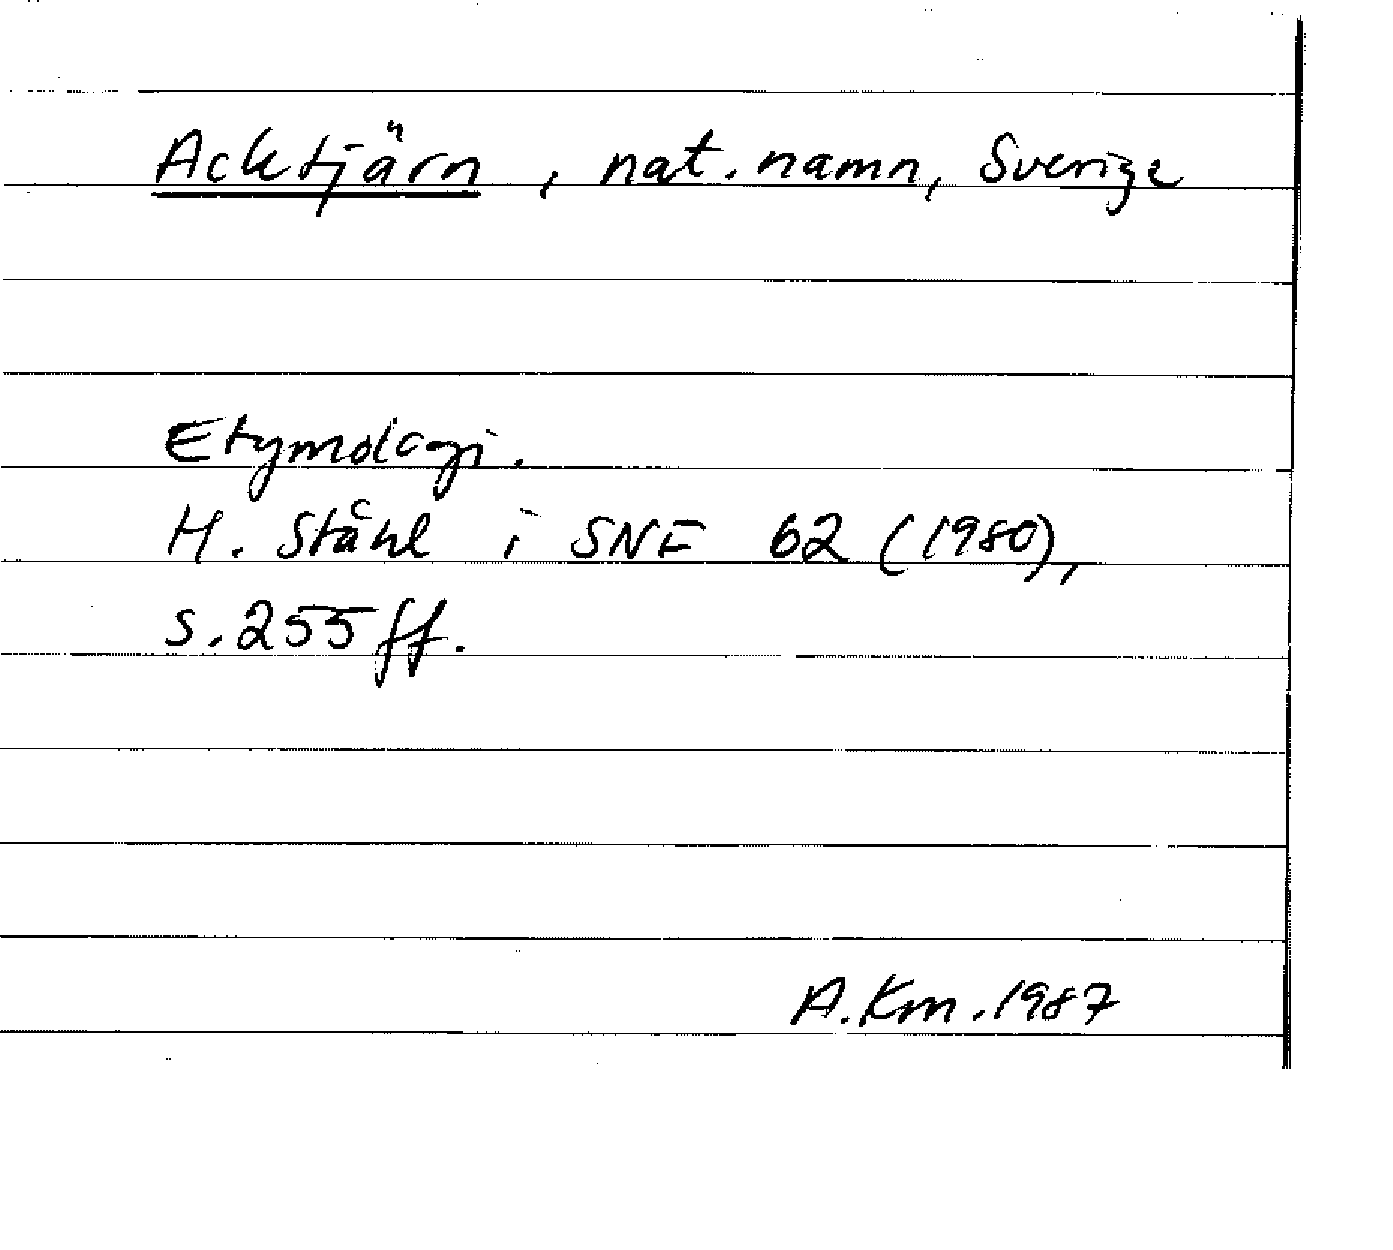 Acktjärn, nat. namn, Sverige
Etymologi.
H. Ståhl i SNF 62 (1980),
s. 255 ff.
A. Km. 1987